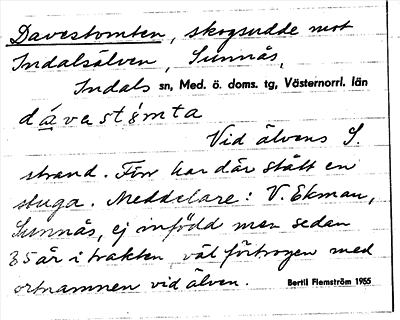 Davestomten, skogsudde mot
Indalsälven, Sunnås,
Indals sn, Med. ö. doms. tg, Västernorrl. län
dávastòmta
Vid älvens S.
strand. Förr har där stått en
stuga. Meddelare: V. Ekman,
Sunnås, ej infödd men sedan
35 år i trakten, väl förtrogen med
ortnamnen vid älven. Bertil Flemström 1955